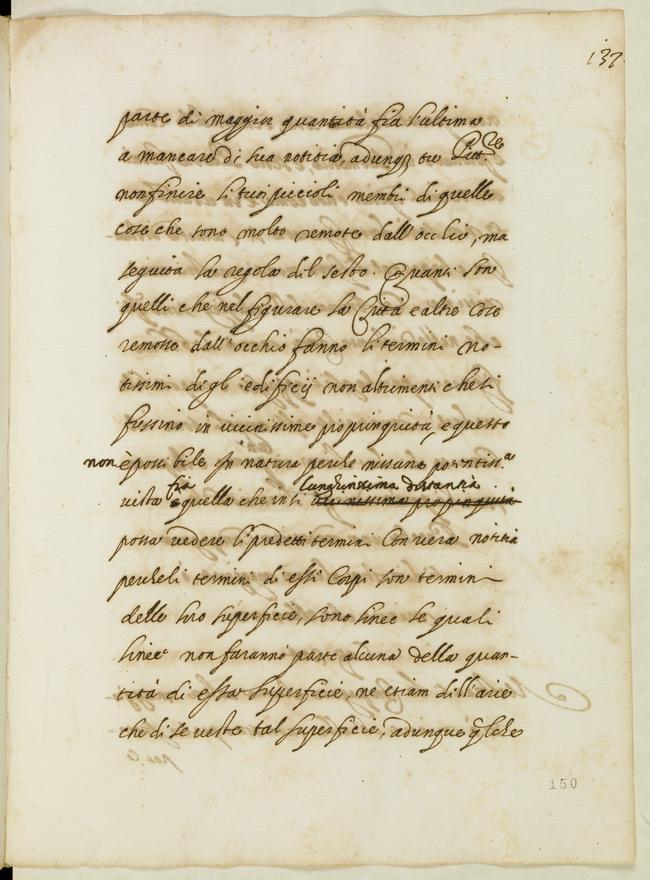 137.
parte di maggior quantità fia l'ultima
a mancare di sua notitia, adunq3 tu Pitt.re
non finire li tuoi piccioli membri di quelle
cose che sono molto remote dall'occhio, ma
seguita la regola del sesto. Quanti son
quelli che nel figurare la Città e altre cose
remosse dall'occhio fanno li termini no-
tissimi degl'edificij non altrimenti che si
fussino in vicinissime propinquità, e questo
non è possibile in natura perche nissuna potentiss.a
vista fia quella che in si lunghissima distantia vicinissima propinquità
possa vedere li predetti termini con vera notitia
perche li termini di essi Corpi son termini
delle loro superficie, sono linee le quali
linee non faranno parte alcuna della quan-
tità di essa superficie, ne etiam dell'aria
che di se veste tal superficie, adunque q̃lche
150